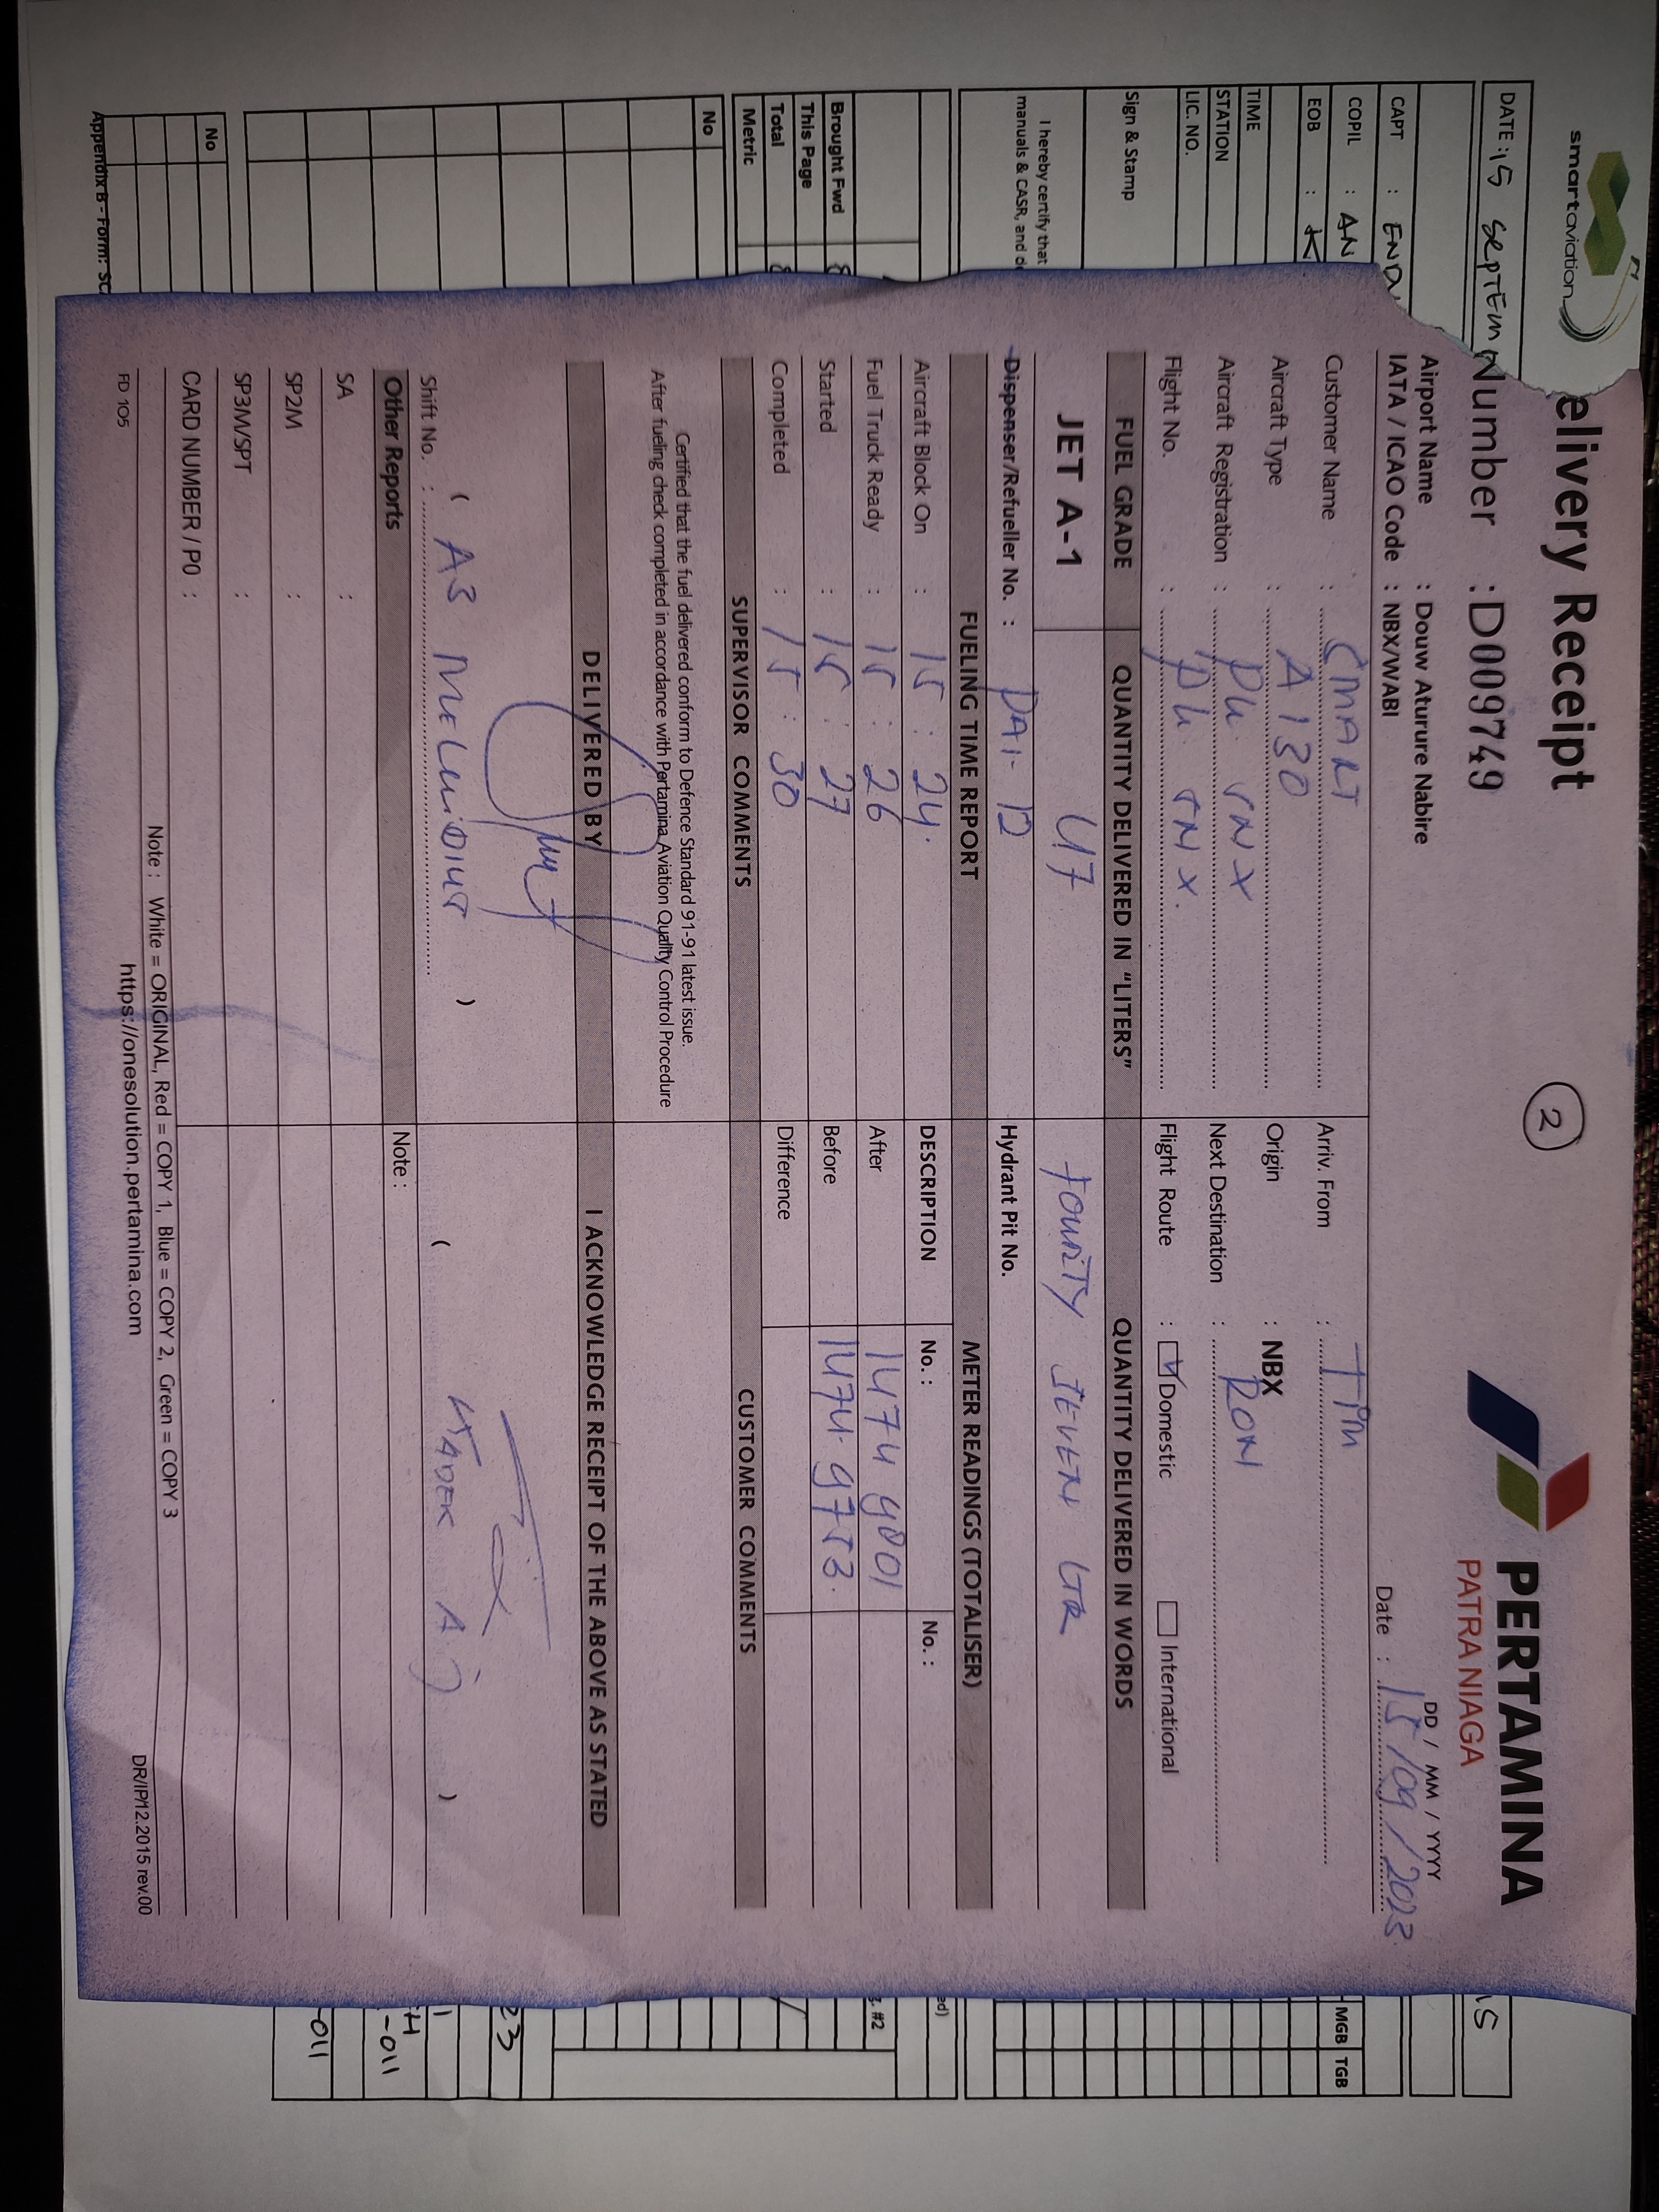 smartaviation
DATE : 15 SEPTEM
CAPT : ENDA
COPIL : AN
EOB : K
TIME
STATION
LIC. NO.
Sign & Stamp
I hereby certify that
manuals & CASR, and de
Brought Fwd
This Page
Total
Metric
No
No
Appendix B - Form: SC
elivery Receipt
2
PERTAMINA
PATRA NIAGA
Number : D009749
DD / MM / YYYY
Airport Name : Douw Aturure Nabire
IATA / ICAO Code : NBX/WABI
Date : 15 / 09 / 2023
Customer Name : SMART
Arriv. From : TIM
Aircraft Type : A 130
Origin : NBX
Aircraft Registration : PK SNX
Next Destination : RON
Flight No. : PK SNX.
Flight Route : Domestic International
FUEL GRADE
QUANTITY DELIVERED IN "LITERS"
QUANTITY DELIVERED IN WORDS
JET A-1
47
FOURTY SEVEN LTR
Dispenser/Refueller No. : DAI- 12
Hydrant Pit No.
FUELING TIME REPORT
METER READINGS (TOTALISER)
Aircraft Block On : 15 : 24.
DESCRIPTION No. : No. :
Fuel Truck Ready : 15 : 26
After
Started : 15 : 27
Before
Completed : 15 : 30
Difference
SUPERVISOR COMMENTS
CUSTOMER COMMENTS
Certified that the fuel delivered conform to Defence Standard 91-91 latest issue.
After fueling check completed in accordance with Pertamina Aviation Quality Control Procedure
DELIVERED BY
I ACKNOWLEDGE RECEIPT OF THE ABOVE AS STATED
( A3 )
( KADEK A. J )
Shift No. :
Other Reports
Note :
SA :
SP2M :
SP3M/SPT :
CARD NUMBER / PO :
Note : White = ORIGINAL, Red = COPY 1, Blue = COPY 2, Green = COPY 3
FD 105
https://onesolution.pertamina.com
DR/IP/12.2015 rev.00
MGB TGB
ed)
#2
23
-011
-011